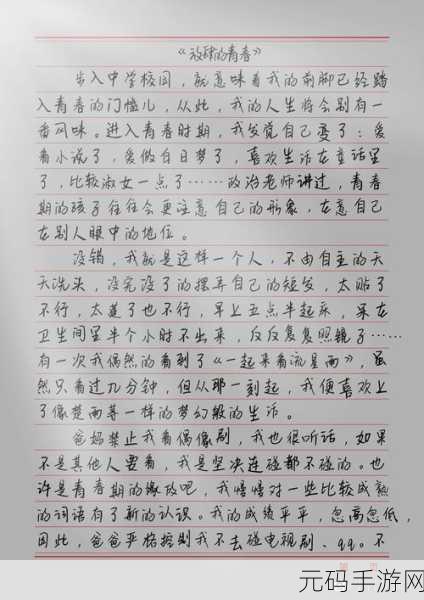 《放肆的青春》
步入中学校园，就意味着我的前脚已经踏
入青春的门槛儿，从此，我的人生将会别有一
番风味。进入青春时期，我发觉自己变了：爱
看小说了，爱做白日梦了，喜欢生活在童话里
了，比较淑女一点了……政治老师讲过，青春
期的孩子往往会更注意自己的形象，在意自己
在别人眼中的地位。
没错，我就是这样一个人，不由自主的天
天洗头，没完没了的摆弄自己的短发，太贴了
不行，太蓬了也不行，早上五点半起床，呆在
卫生间里半个小时不出来，反反复复照镜子……
有一次我偶然的看到了《一起来看流星雨》，虽
然只看过几分钟，但从那一刻起，我便喜欢上
了像楚雨荨一样的梦幻般的生活。
爸妈禁止我看偶像剧，我也很听话，如果
不是其他人要看，我是坚决连碰都不碰的。也
许是青春期的缘故吧，我悄悄对一些比较成熟
的词语有了新的认识。我的成绩平平，忽高忽低，
因此，爸爸严格控制我不去碰电视剧、qq。不
第 页
元码手游网